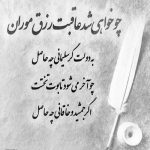 چو خواهی شد عاقبت رزق موران
به دولت گر سلیمانی چه حاصل
چو آخر می شود تابوت تختت
اگر جمشید و خاقانی چه حاصل